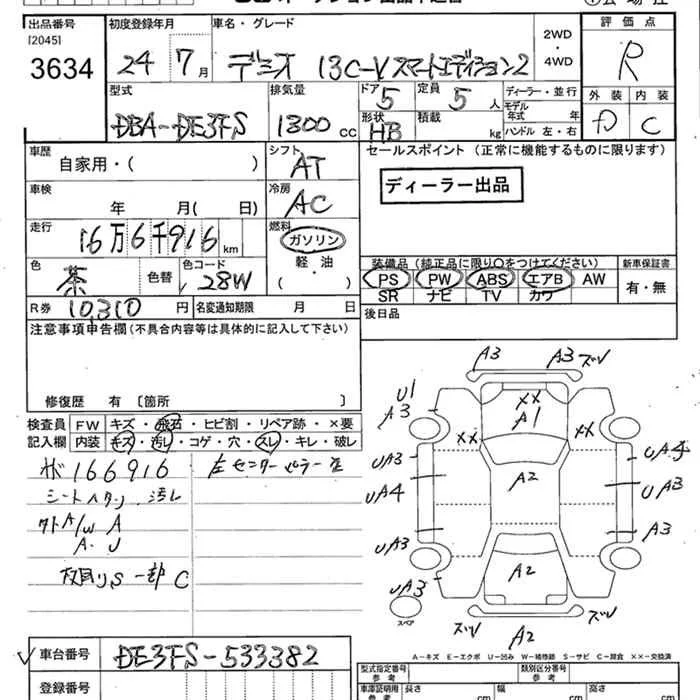 出品番号 初度登録年月 車名・グレード 2WD・4WD 評価点
[2045] 3634 24 7月 デミオ 13C-V スマートエディション2 R
型式 排気量 ドア 5 定員 5人 ディーラー・並行 外装 内装
DBA-DE3FS 1300cc 形状 HB 積載 kg モデル年式 年 ハンドル 左・右 D C
車歴 自家用・( ) シフト AT セールスポイント (正常に機能するものに限ります)
車検 年 月( 日) 冷房 AC ディーラー出品
走行 16万6千916km 燃料 ガソリン 軽・油 ( )
装備品(純正品に限り○をつけてください) 新車保証書
色 茶 色替 色コード 28W PS PW ABS エアB AW 有・無
SR ナビ TV カワ
R券 10,310円 名変通知期限 月 日 後日品
注意事項申告欄(不具合内容等は具体的に記入して下さい)
修復歴 有 [箇所 ]
検査員 FW キズ・飛石・ヒビ割・リペア跡・×要
記入欄 内装 キズ・汚レ・コゲ・穴・スレ・キレ・破レ
166916
シートヘタリ 汚レ
A/W A
A・U
S 一部 C
A3 A3 ズレ
U1
A3 XX
A1
XX XX
UA3 UA4
UA4 A2 UA3
A3
UA3
A2
UA3
スペア
ズレ A2 ズレ
A-キズ E-エクボ U-凹み W-補修跡 S-サビ C-腐食 XX-交換済
車台番号 DE3FS-533382 型式指定番号 参考 類別区分番号 参考
登録番号 車庫証明用 参考 長さ cm 幅 cm 高さ cm